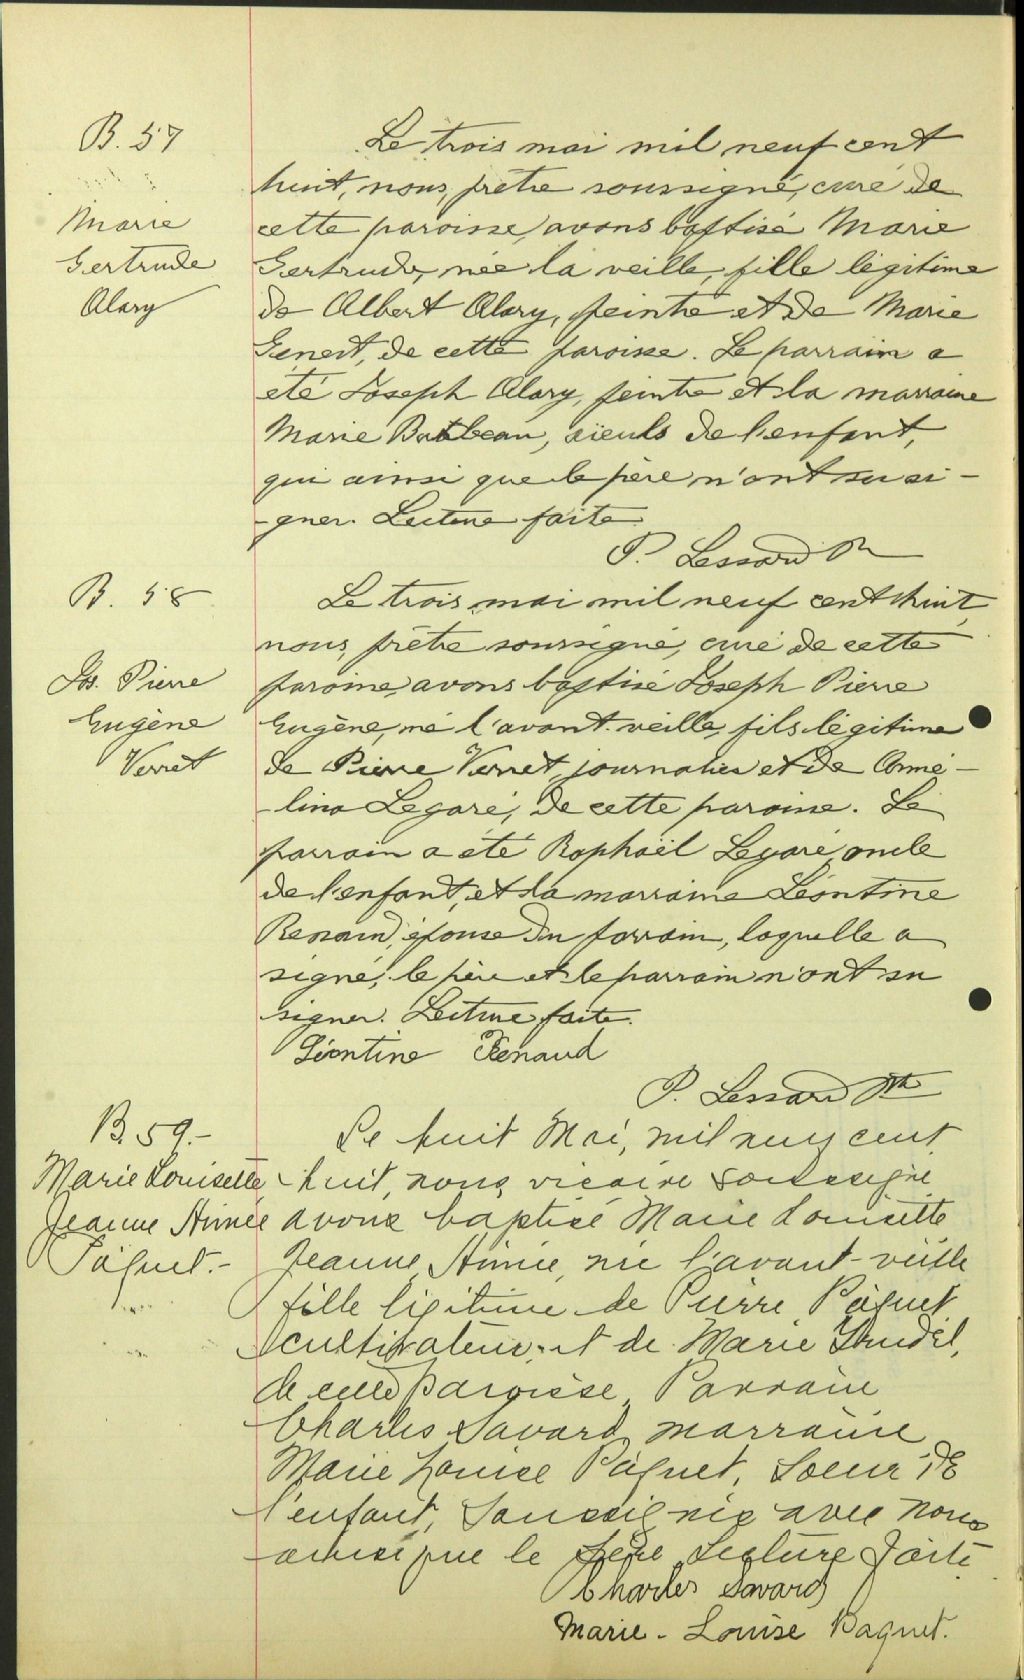 B. 57
Marie
Gertrude
Alary
Le trois mai mil neuf cent
huit, nous, prêtre soussigné, curé de
cette paroisse, avons baptisé Marie
Gertrude, née la veille, fille légitime
de Albert Alary, peintre et de Marie
Genest, de cette paroisse. Le parrain a
été Joseph Alary, peintre et la marraine
Marie Barbeau, aïeuls de l'enfant,
qui ainsi que le père n'ont su si-
-gner. Lecture faite
P. Lessard Ptre
B. 58
Jos. Pierre
Eugène
Verret
Le trois mai mil neuf cent huit,
nous, prêtre soussigné, curé de cette
paroisse, avons baptisé Joseph Pierre
Eugène, né l'avant-veille, fils légitime
de Pierre Verret, journalier et de Armé-
-lina Legaré, de cette paroisse. Le
parrain a été Raphaël Legaré, oncle
de l'enfant, et la marraine Léontine
Renaud, épouse du parrain, laquelle a
signé; le père et le parrain n'ont su
signer. Lecture faite.
Léontine Renaud
P. Lessard Ptre
B. 59.-
Marie Louisette
Jeanne Aimée
Pâquet.-
Le huit Mai, mil neuf cent
huit, nous, vicaire soussigné
avons baptisé Marie Louisette
Jeanne, Aimée, née l'avant-veille
fille légitime de Pierre Pâquet
cultivateur, et de Marie Trudel,
de cette paroisse, Parrain
Charles Savard, marraine
Marie Louise Pâquet, soeur de
l'enfant, soussignés avec nous
ainsi que le père Lecture faite
Charles Savard
Marie-Louise Paquet.